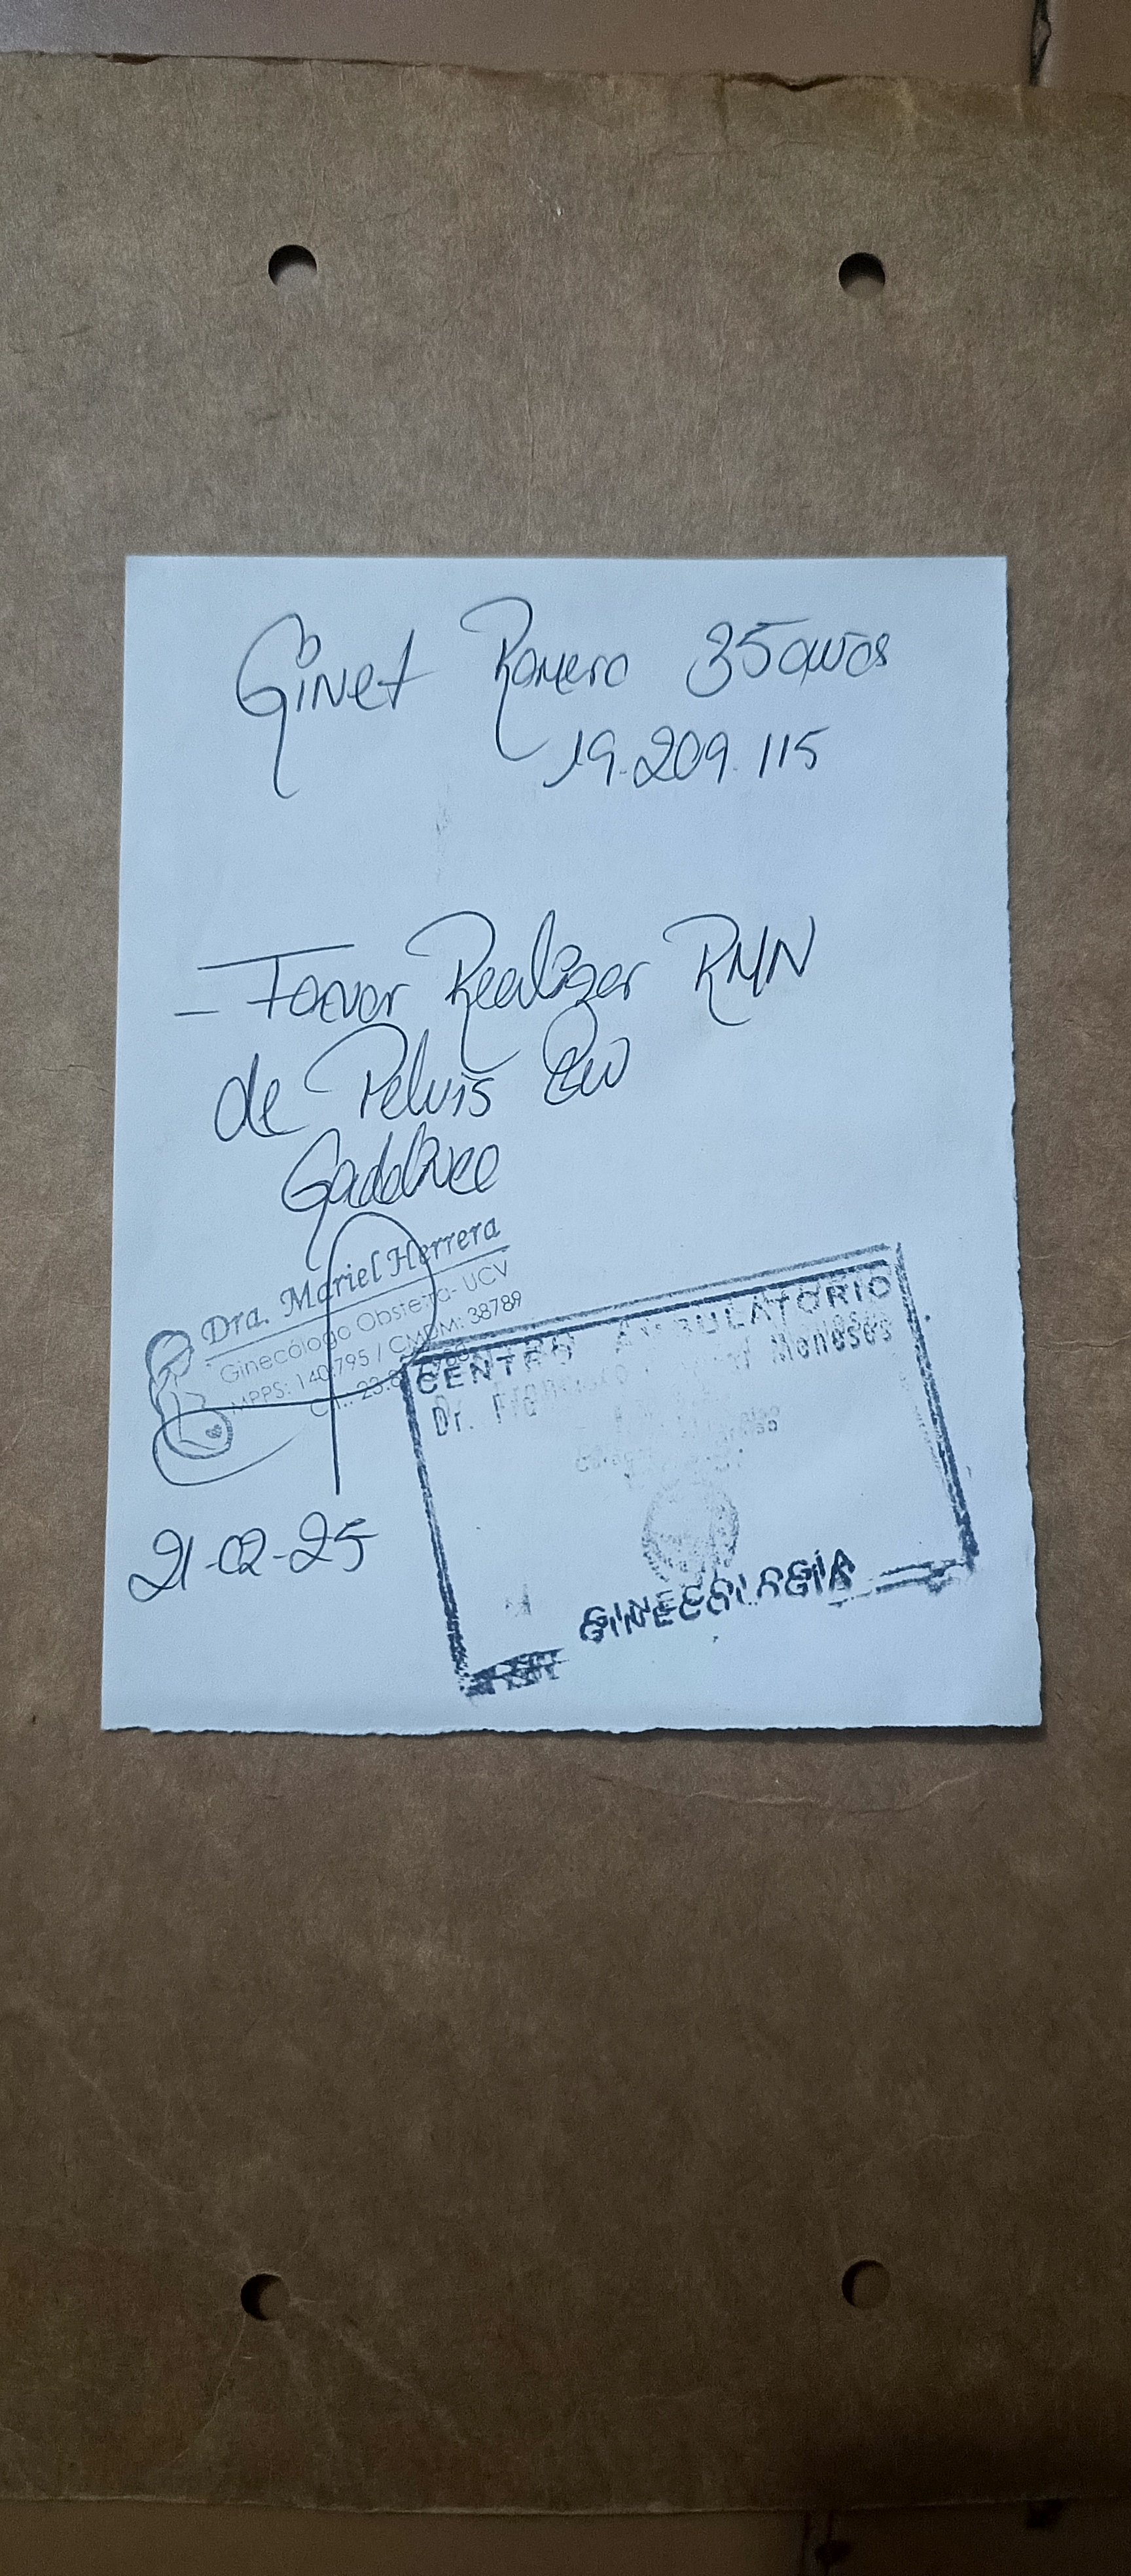 Ginet Romero 35 años
19.209.115
- Favor Realizar RMN
de Pelvis con
Gadolineo
Dra. Mariel Herrera
Ginecólogo Obstetra- UCV
MPPS: 140.795 / CMDM: 38789
C.I.: 23.8
CENTRO AMBULATORIO
Dr. Francisco Meneses
21-02-25
GINECOLOGÍA